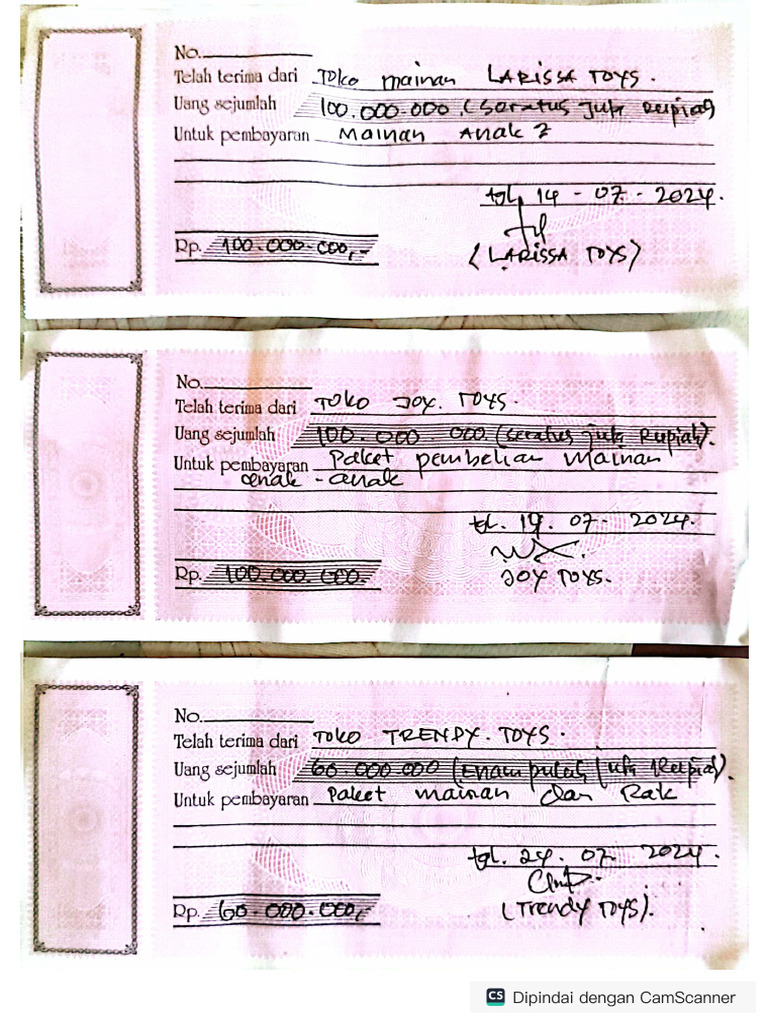 No.
Telah terima dari Toko mainan LARISSA TOYS.
Uang sejumlah 100.000.000 (Seratus Juta Rupiah)
Untuk pembayaran Mainan Anak 2
tgl, 14 - 07 - 2024.
Rp. 100.000.000,-
(LARISSA TOYS)
No.
Telah terima dari TOKO JOY. TOYS.
Uang sejumlah 100.000.000. (Seratus Juta Rupiah).
Untuk pembayaran Paket pembelian Mainan
anak-anak
tgl. 19. 07. 2024.
Rp. 100.000.000.
JOY TOYS.
No.
Telah terima dari TOKO TRENDY. TOYS.
Uang sejumlah 60.000.000 (Enam puluh Juta Rupiah).
Untuk pembayaran Paket mainan dan Rak
tgl. 24. 07. 2024.
Rp. 60.000.000,-
(Trendy TOYS).
CS Dipindai dengan CamScanner